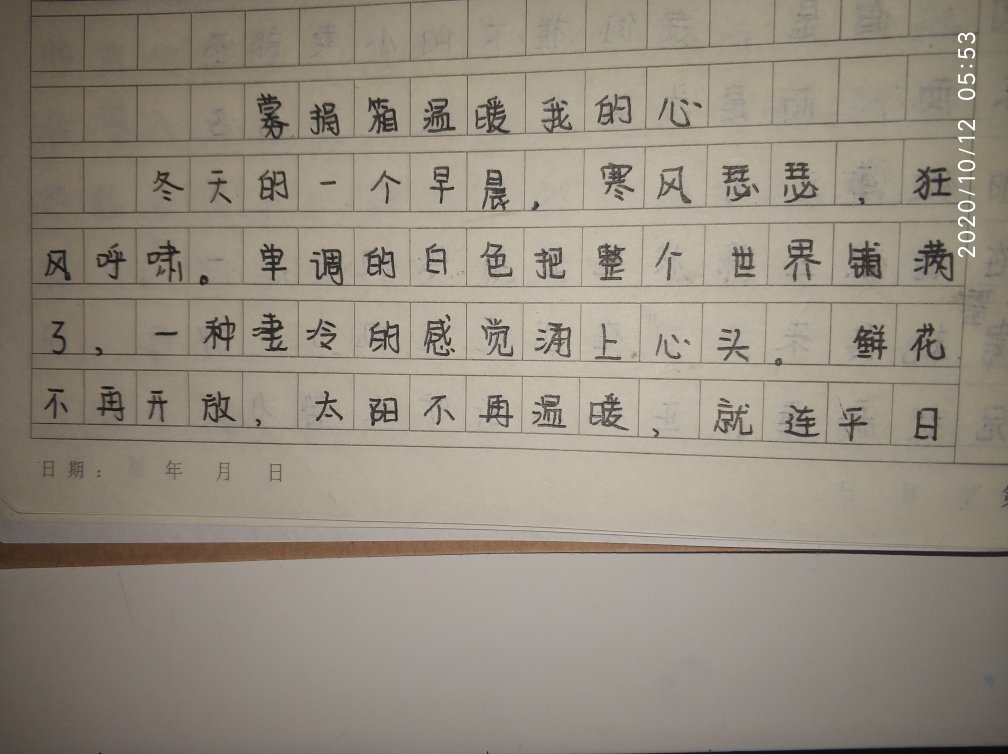 募捐箱温暖我的心
冬天的一个早晨，寒风瑟瑟，狂
风呼啸。单调的白色把整个世界铺满
了，一种凄冷的感觉涌上心头。鲜花
不再开放，太阳不再温暖，就连平日
日期： 年 月 日
2020/10/12 05:53